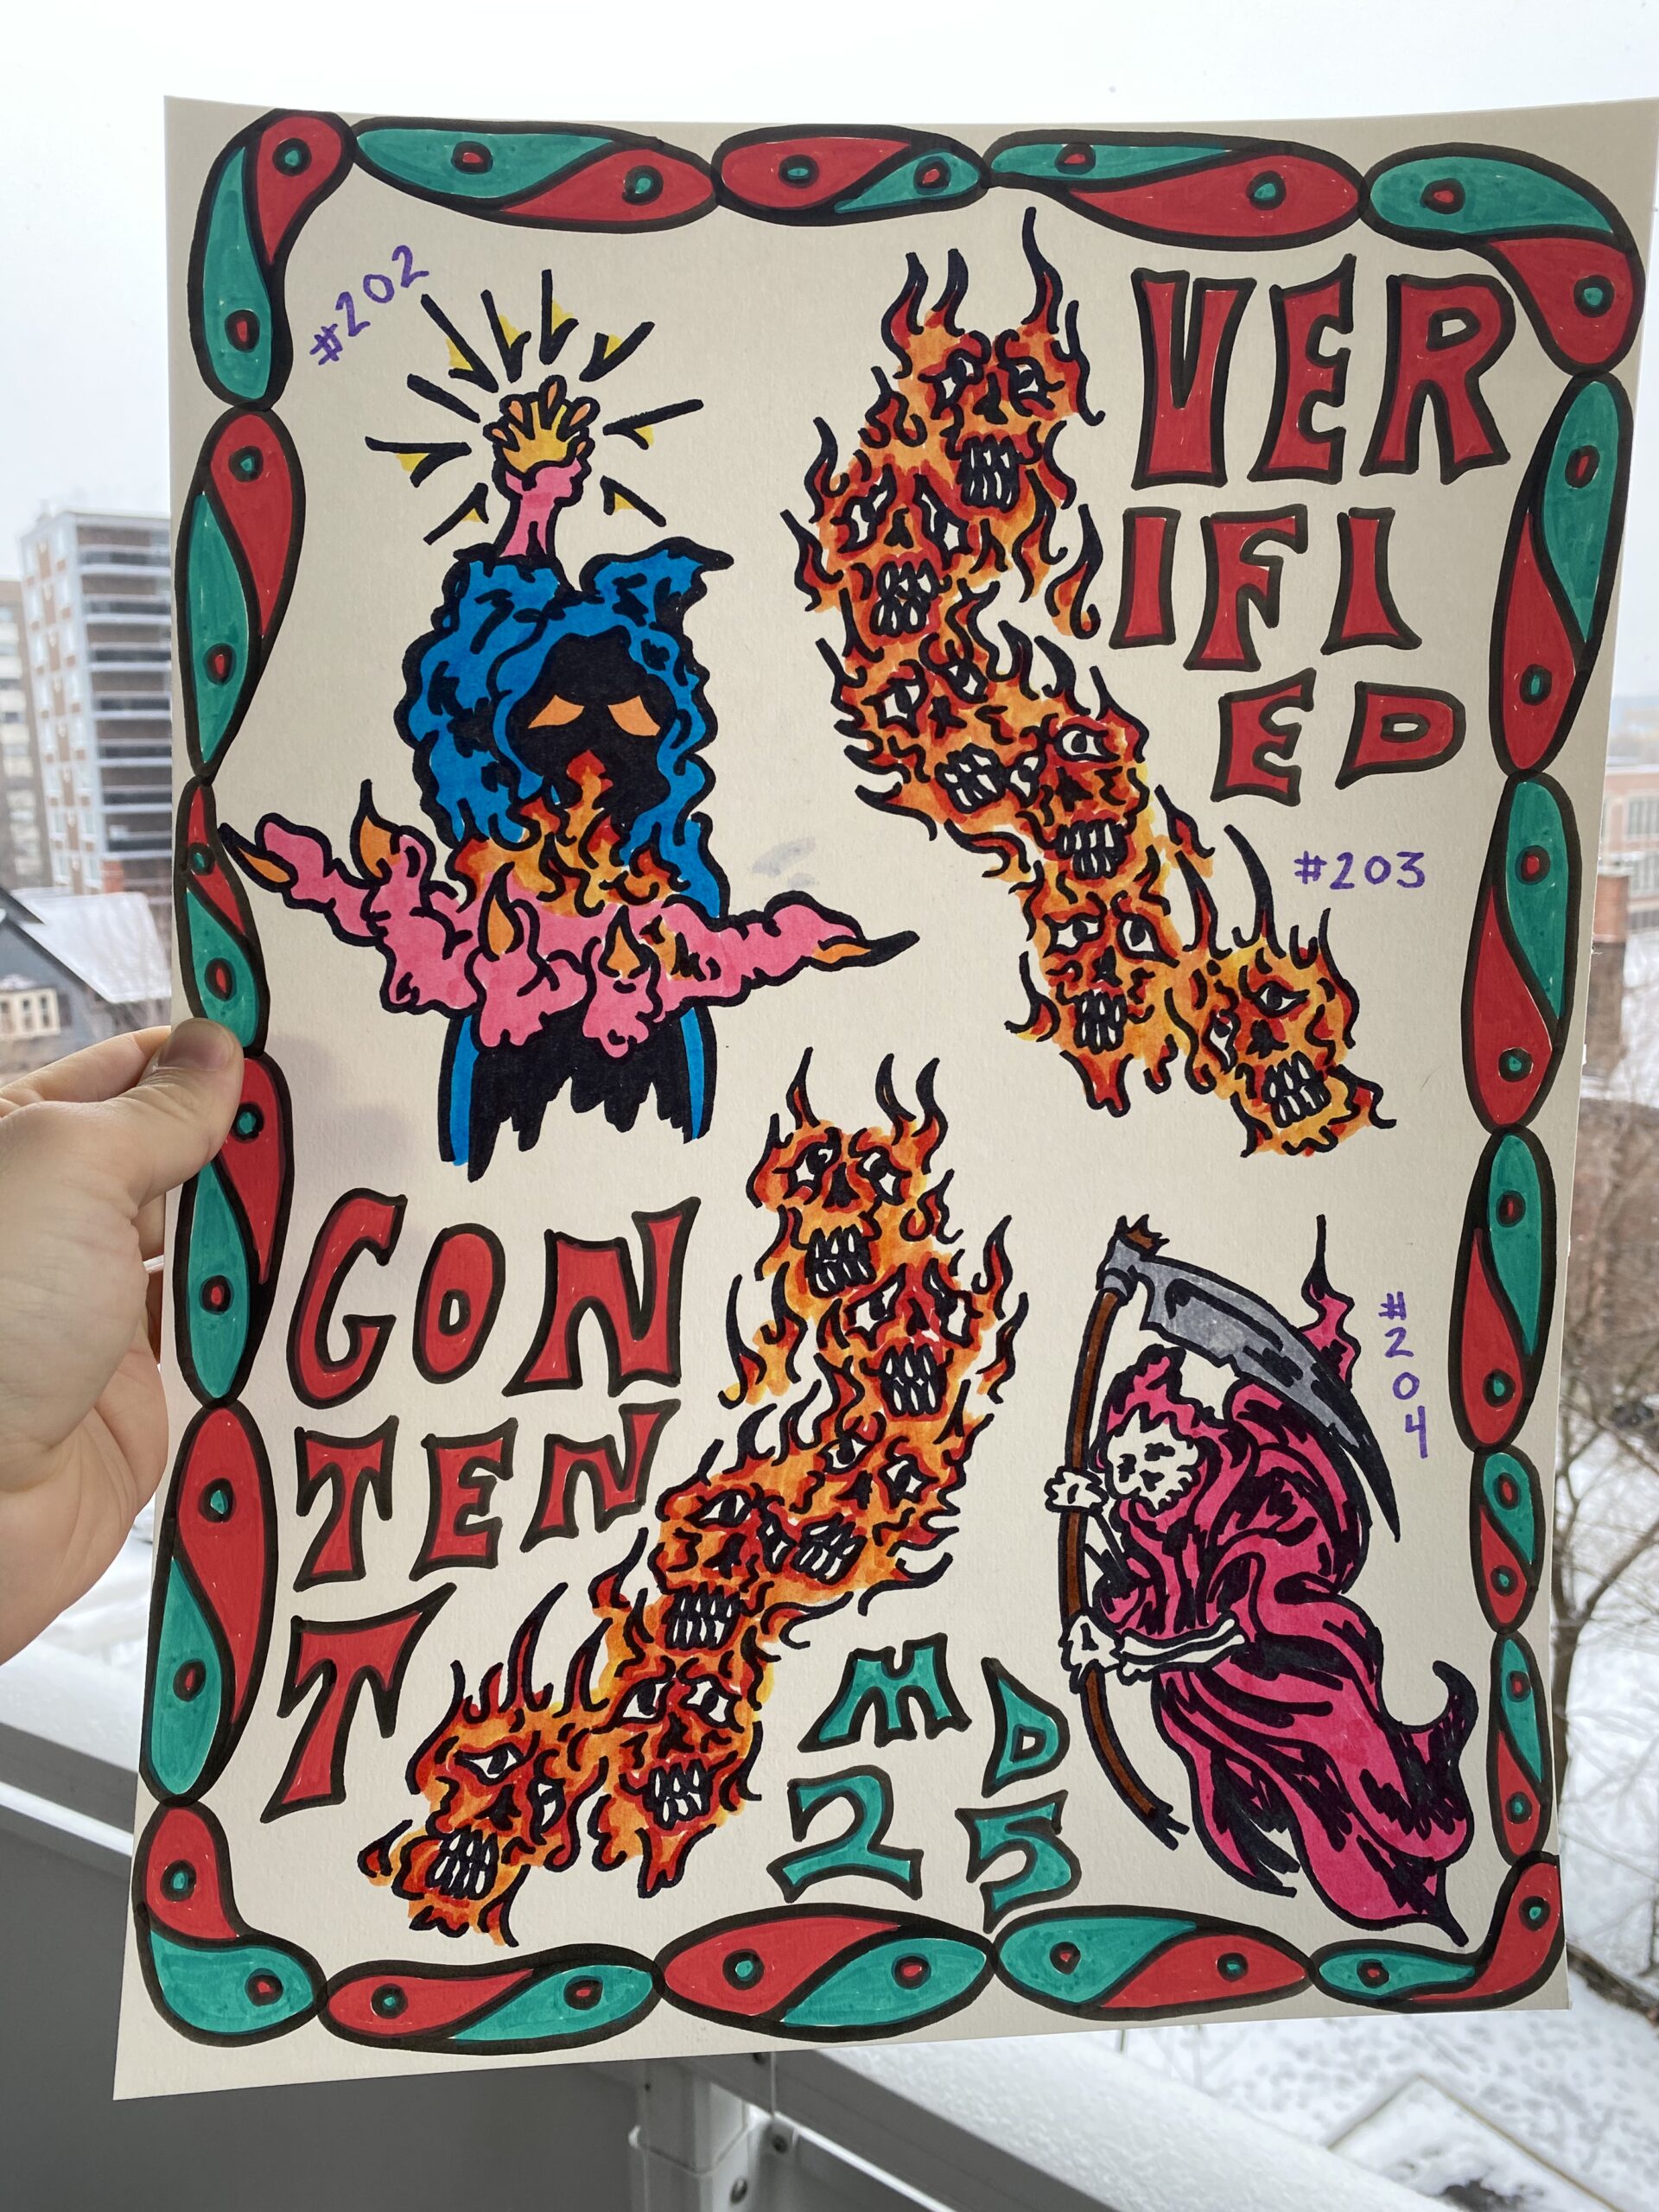 #202
VER
IFI
ED
#203
CON
TEN
T
#204
MD
25